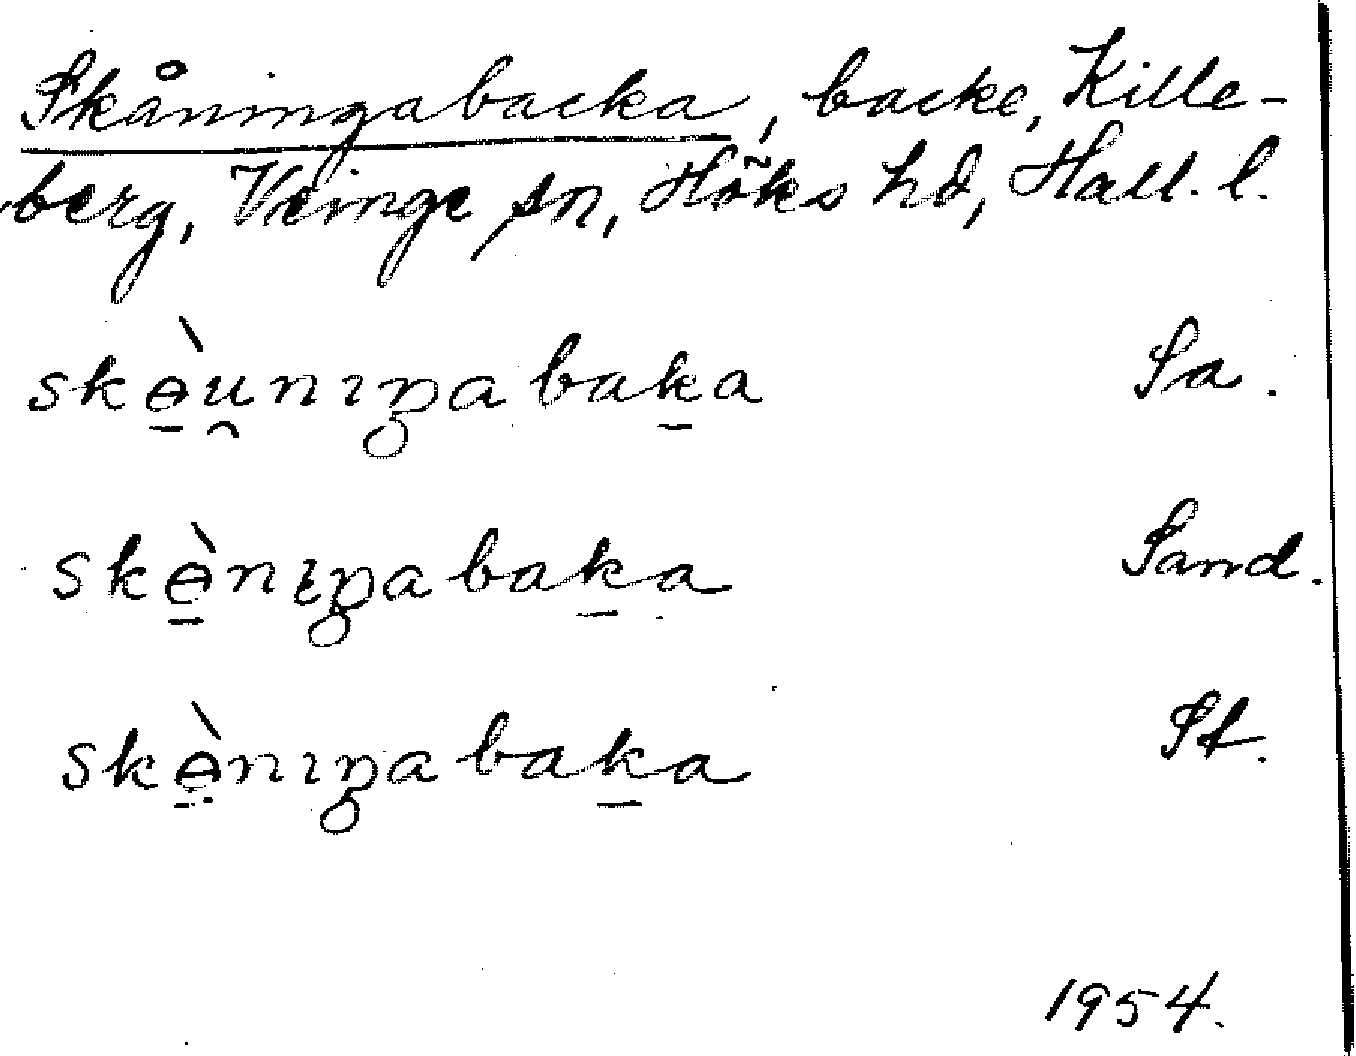 Skåningabacka, backe, Kille-
berg, Veinge sn, Höks hd, Hall. l.
skə̠̀u̯nıŋabak̠a Sa.
skə̠̀nıŋabak̠a Sand.
skə̠̀nıŋabak̠a St.
1954.